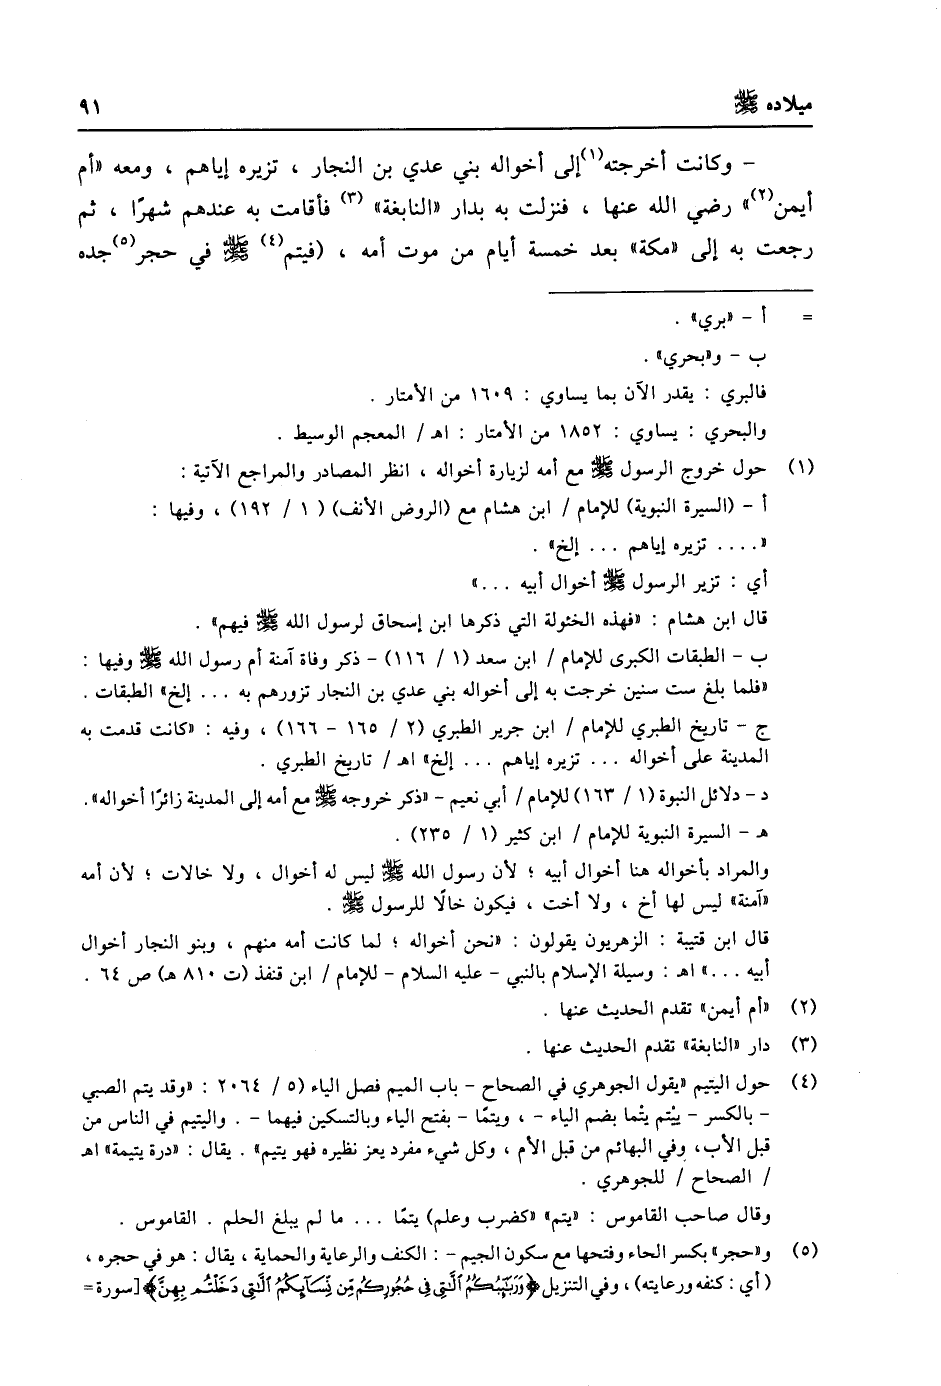 ميلاده ﷺ ٩١
– وكانت أخرجته(١) إلى أخواله بني عدي بن النجار ، تزيره إياهم ، ومعه «أم
أيمن(٢)» رضي الله عنها ، فنزلت به بدار «النابغة» (٣) فأقامت به عندهم شهرًا ، ثم
رجعت به إلى «مكة» بعد خمسة أيام من موت أمه ، (فيتم(٤) ﷺ في حجر(٥) جده
= أ – «بري» .
ب – و«بحري» .
فالبري : يقدر الآن بما يساوي : ١٦٠٩ من الأمتار .
والبحري : يساوي : ١٨٥٢ من الأمتار : اهـ / المعجم الوسيط .
(١) حول خروج الرسول ﷺ مع أمه لزيارة أخواله ، انظر المصادر والمراجع الآتية :
أ – (السيرة النبوية) للإمام / ابن هشام مع (الروض الأنف) ( ١ / ١٩٢) ، وفيها :
«.... تزيره إياهم ... إلخ» .
أي : تزير الرسول ﷺ أخوال أبيه ...»
قال ابن هشام : «فهذه الخئولة التي ذكرها ابن إسحاق لرسول الله ﷺ فيهم» .
ب – الطبقات الكبرى للإمام / ابن سعد (١ / ١١٦) – ذكر وفاة آمنة أم رسول الله ﷺ وفيها :
«فلما بلغ ست سنين خرجت به إلى أخواله بني عدي بن النجار تزورهم به ... إلخ» الطبقات .
ج – تاريخ الطبري للإمام / ابن جرير الطبري (٢ / ١٦٥ – ١٦٦) ، وفيه : «كانت قدمت به
المدينة على أخواله ... تزيره إياهم ... إلخ» اهـ / تاريخ الطبري .
د – دلائل النبوة (١ / ١٦٣) للإمام / أبي نعيم – «ذكر خروجه ﷺ مع أمه إلى المدينة زائرًا أخواله».
هـ – السيرة النبوية للإمام / ابن كثير (١ / ٢٣٥) .
والمراد بأخواله هنا أخوال أبيه ؛ لأن رسول الله ﷺ ليس له أخوال ، ولا خالات ؛ لأن أمه
«آمنة» ليس لها أخ ، ولا أخت ، فيكون خالًا للرسول ﷺ .
قال ابن قتيبة : الزهريون يقولون : «نحن أخواله ؛ لما كانت أمه منهم ، وبنو النجار أخوال
أبيه ...» اهـ : وسيلة الإسلام بالنبي – عليه السلام – للإمام / ابن قنفذ (ت ٨١٠ هـ) ص ٦٤ .
(٢) «أم أيمن» تقدم الحديث عنها .
(٣) دار «النابغة» تقدم الحديث عنها .
(٤) حول اليتيم «يقول الجوهري في الصحاح – باب الميم فصل الياء (٥ / ٢٠٦٤ : «وقد يتم الصبي
– بالكسر – يَيْتم يتْما بضم الياء – ، ويتمًا – بفتح الياء وبالتسكين فيهما – . واليتيم في الناس من
قبل الأب، وفي البهائم من قبل الأم ، وكل شيء مفرد يعز نظيره فهو يتيم» . يقال : «درة يتيمة» اهـ
/ الصحاح / للجوهري .
وقال صاحب القاموس : «يتم» «كضرب وعلم) يتمًا ... ما لم يبلغ الحلم . القاموس .
(٥) و«حجر» بكسر الحاء وفتحها مع سكون الجيم – : الكنف والرعاية والحماية ، يقال : هو في حجره ،
(أي : كنفه ورعايته) ، وفي التنزيل ﴿وَرَبَٰٓئِبُكُمُ ٱلَّٰتِى فِى حُجُورِكُم مِّن نِّسَآئِكُمُ ٱلَّٰتِى دَخَلْتُم بِهِنَّ﴾ [سورة =